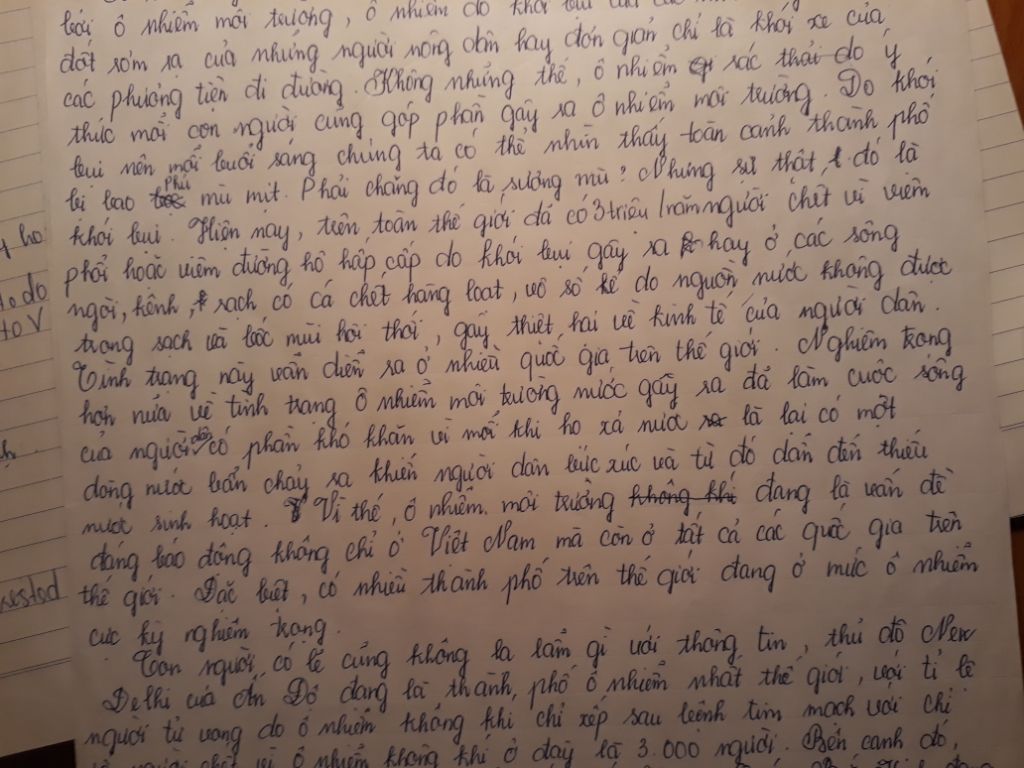 bởi ô nhiễm môi trường, ô nhiễm do khói bụi của các
đốt rơm rạ của những người nông dân hay đơn giản chỉ là khói xe của
các phương tiện đi đường. Không những thế, ô nhiễm rác thải do ý
thức mỗi con người cũng góp phần gây ra ô nhiễm môi trường. Do khói
bụi nên mỗi buổi sáng chúng ta có thể nhìn thấy toàn cảnh thành phố
bị bao phủ mù mịt. Phải chăng đó là sương mù? Nhưng sự thật, đó là
khói bụi. Hiện nay, trên toàn thế giới đã có 3 triệu / năm người chết vì viêm
phổi hoặc viêm đường hô hấp cấp do khói bụi gây ra hay ở các sông
ngòi, kênh, rạch có cá chết hàng loạt, vô số kể do nguồn nước không được
trong sạch và bốc mùi hôi thối, gây thiệt hại về kinh tế của người dân.
Tình trạng này vẫn diễn ra ở nhiều quốc gia trên thế giới. Nghiêm trọng
hơn nữa về tình trạng ô nhiễm môi trường nước gây ra đã làm cuộc sống
của người dân có phần khó khăn vì mỗi khi họ xả nước là lại có một
dòng nước bẩn chảy ra khiến người dân bức xúc và từ đó dẫn đến thiếu
nước sinh hoạt. Vì thế, ô nhiễm môi trường không khí đang là vấn đề
đáng báo động không chỉ ở Việt Nam mà còn ở tất cả các quốc gia trên
thế giới. Đặc biệt, có nhiều thành phố trên thế giới đang ở mức ô nhiễm
cực kỳ nghiêm trọng.
Con người, có lẽ cũng không lạ lẫm gì với thông tin, thủ đô New
Delhi của Ấn Độ đang là thành phố ô nhiễm nhất thế giới, với tỉ lệ
người tử vong do ô nhiễm không khí chỉ xếp sau bệnh tim mạch với chỉ
người chết vì ô nhiễm không khí ở đây là 3.000 người. Bên cạnh đó,